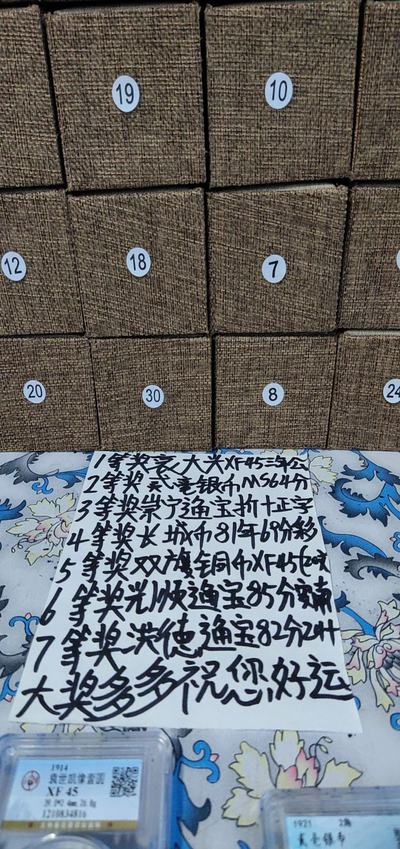 19
10
12
18
7
20
30
8
24
1等奖袁大头XF45三年公
2等奖贰毫银币MS64分
3等奖崇宁通宝折十正字
4等奖长城币81年69分彩
5等奖双旗铜币XF45
6等奖光顺通宝85分安南
7等奖洪德通宝82分
大奖多多祝您好运
1914
袁世凯像壹圆
XF 45
1210834816
1921 2角
贰毫银币